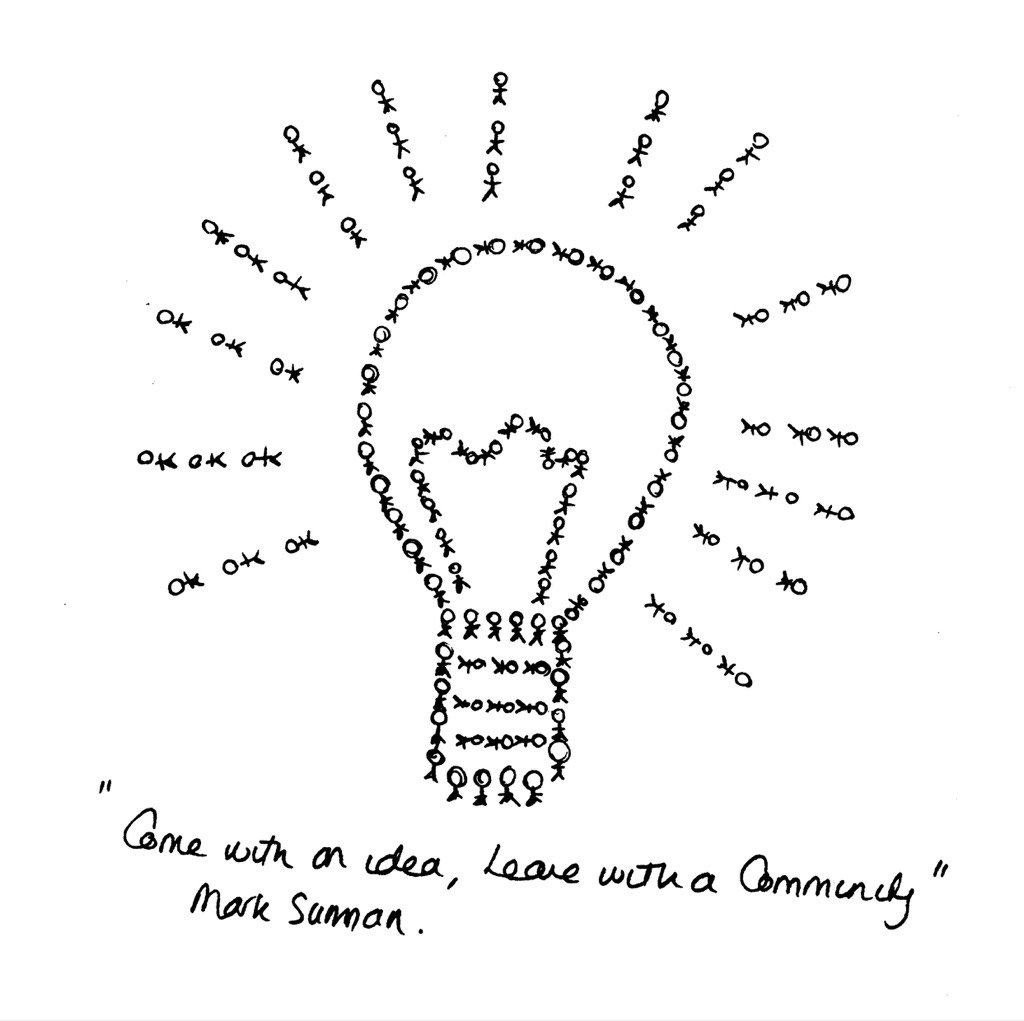 "Come with an idea, Leave with a Community"
Mark Surman.